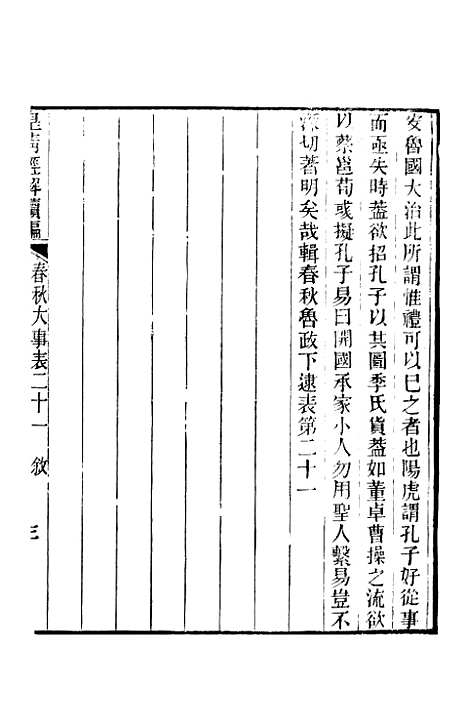 安魯國大治此所謂惟禮可以已之者也陽虎謂孔子好從事
而亟失時蓋欲招孔子以其圖季氏貨蓋如董卓曹操之流欲
以蔡邕荀或擬孔子易曰開國承家小人勿用聖人繫易豈不
深切著明矣哉輯春秋魯政下逮表第二十一
皇清經解續編
春秋大事表二十一 敘
三